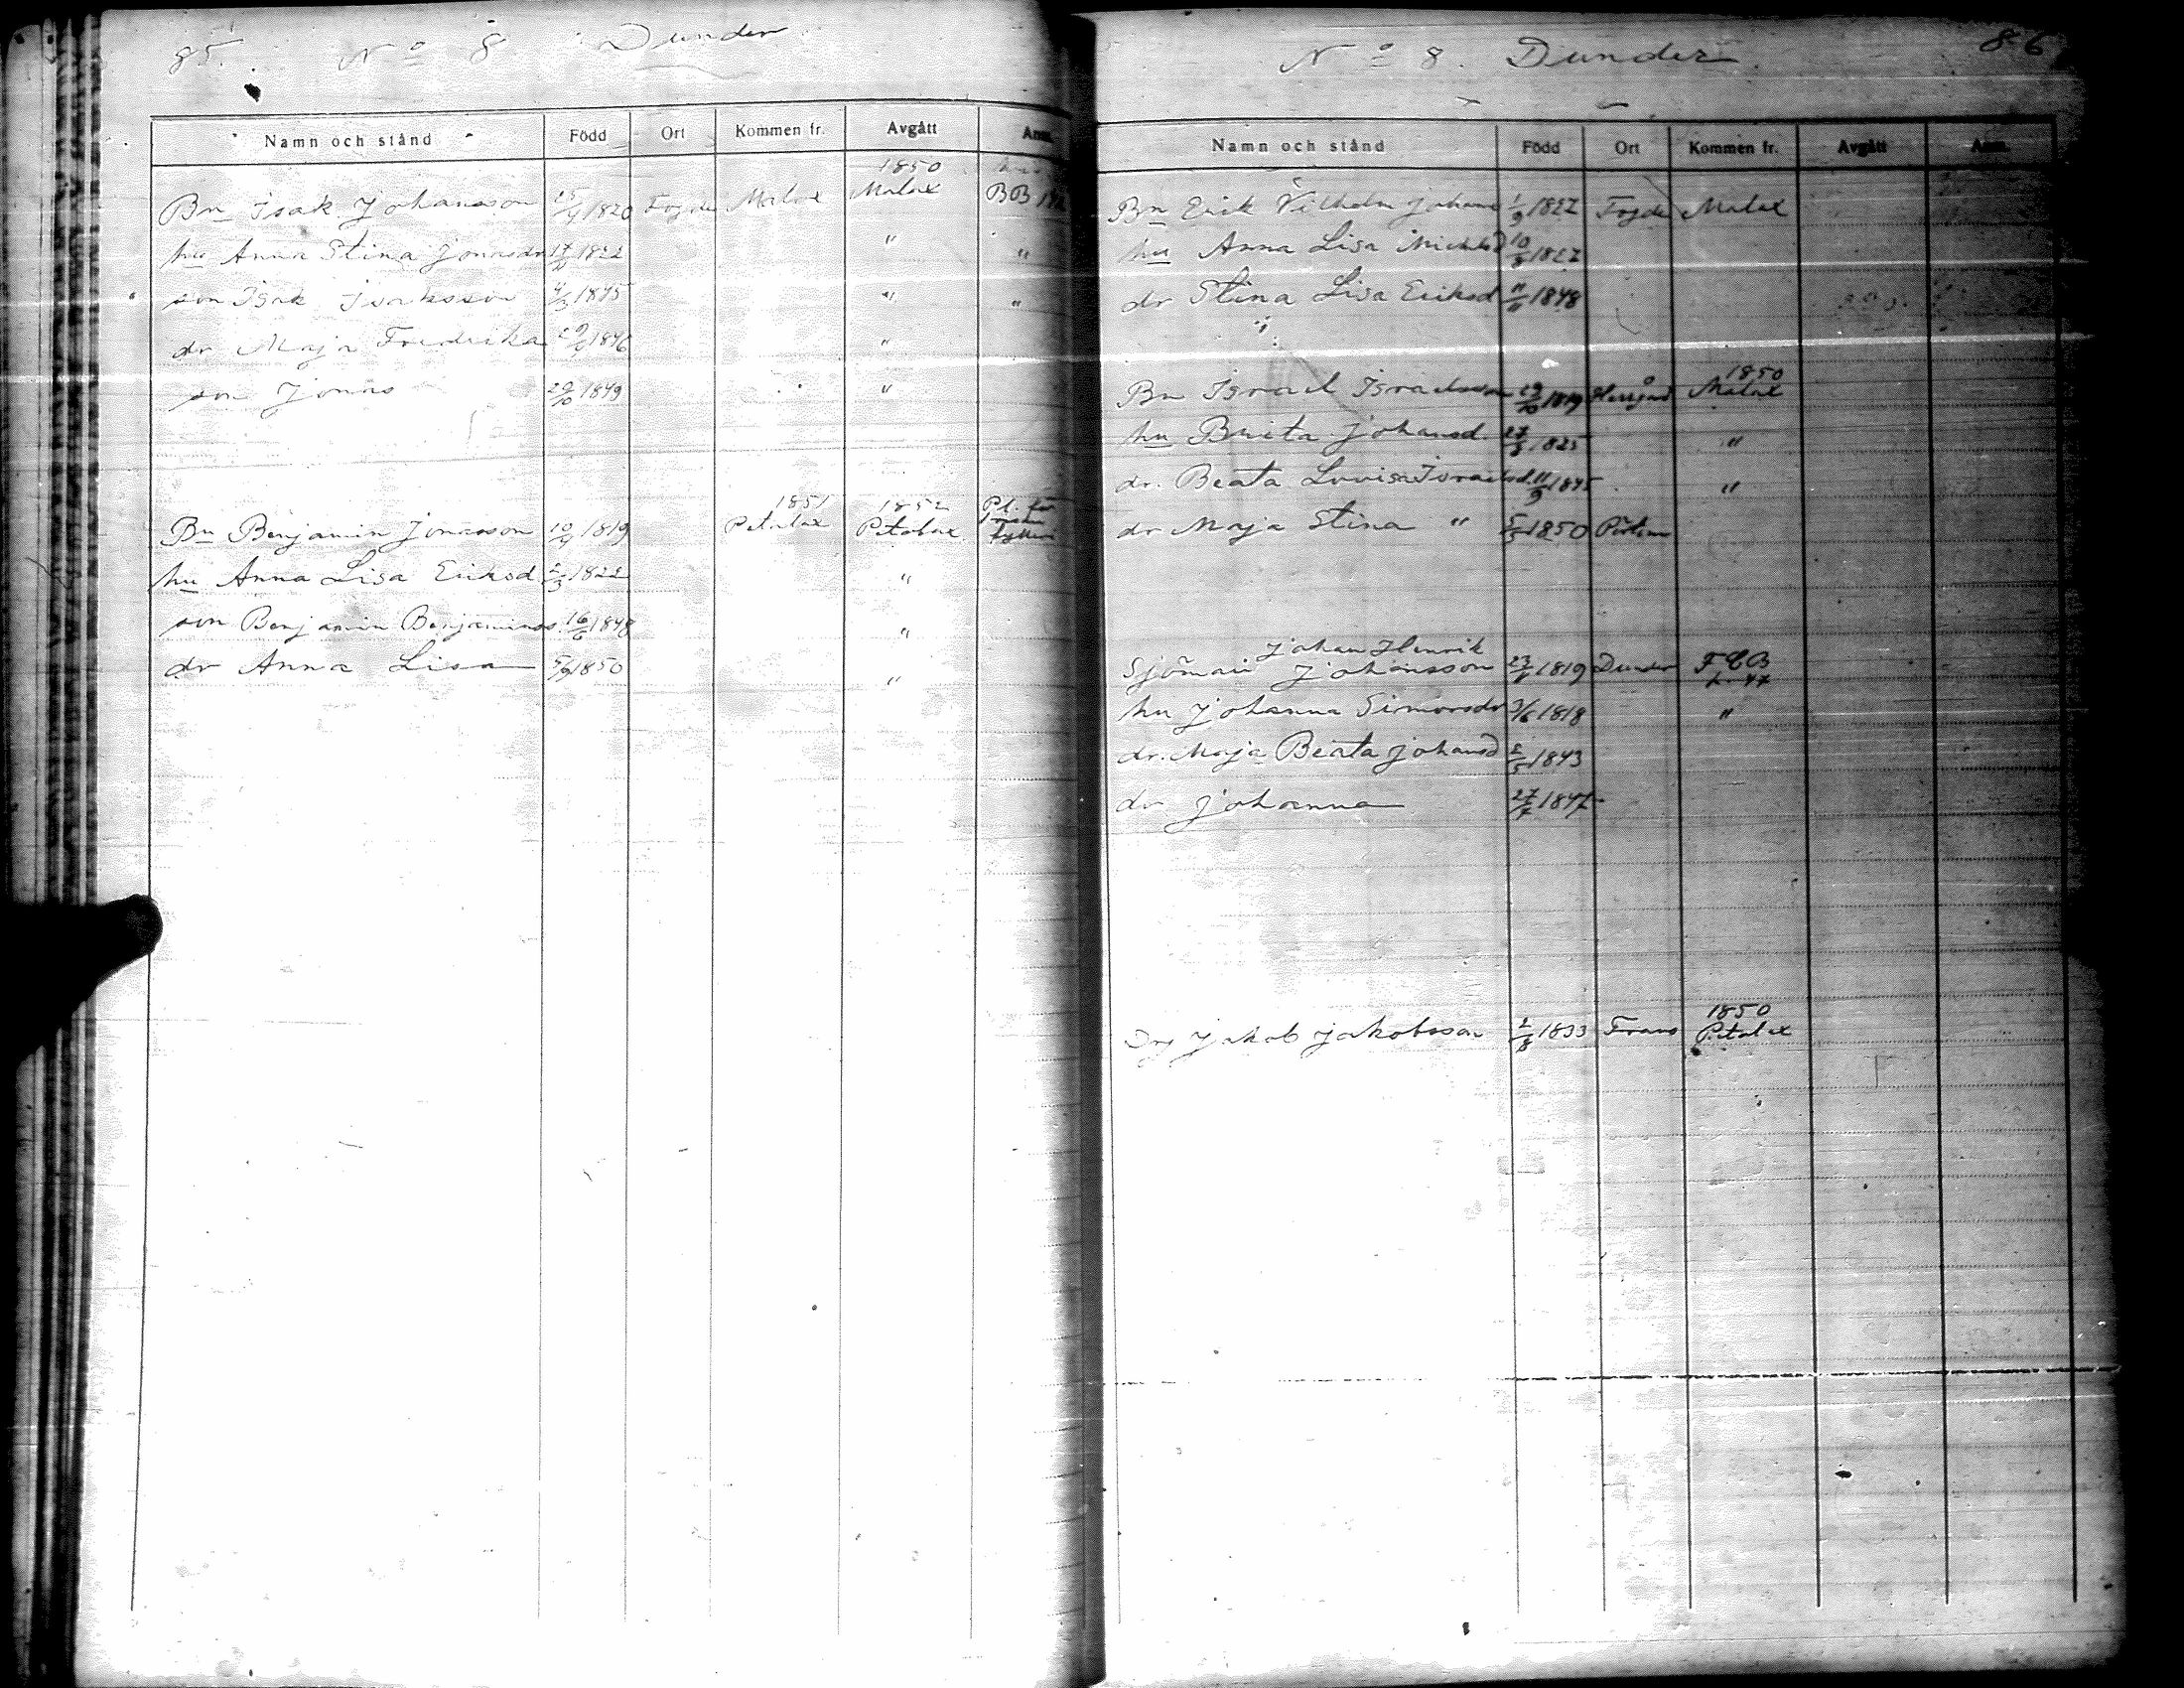 85. No 8 Dunder
Namn och stånd Född Ort Kommen fr. Avgått Anm.
1850
Bn Isak Johansson 25/4 1820 Fogde Malax Malax BB
hu Anna Stina Jonasdr 17/11 1822 " "
son Isak Isaksson 4/3 1845 " "
dr Maja Fredrika 1846 "
son Jonas 29/10 1849 "
1851 1852 Pl. för
Bn Benjamin Jonasson 10/4 1819 Petalax Petalax
hu Anna Lisa Eriksd 2/3 1822 "
son Benjamin Benjamins. 16/6 1848 "
dr Anna Lisa 5/9 1850 "
No 8. Dunder 86
Namn och stånd Född Ort Kommen fr. Avgått Anm.
Bn Erik Vilhelm Johans 1/9 1827 Fogde Malax
hu Anna Lisa Mickelsd 10/8 1827
dr Stina Lisa Eriksd 11/11 1848
1850
Bn Israel Israelsson 29/10 1819 Malax
hu Brita Johansd. 27/3 1825 "
dr. Beata Lovisa Israelsd 11/9 1845 "
dr Maja Stina " 5/5 1850
Johan Henrik
Sjöman Johansson 23/1 1819 Dunder
hu Johanna Simonsdr 3/6 1818 "
dr. Maja Beata Johansd 2/5 1843
dr Johanna 27/7 1847
1850
Drg Jakob Jakobsson 2/8 1833 Frans Petalax